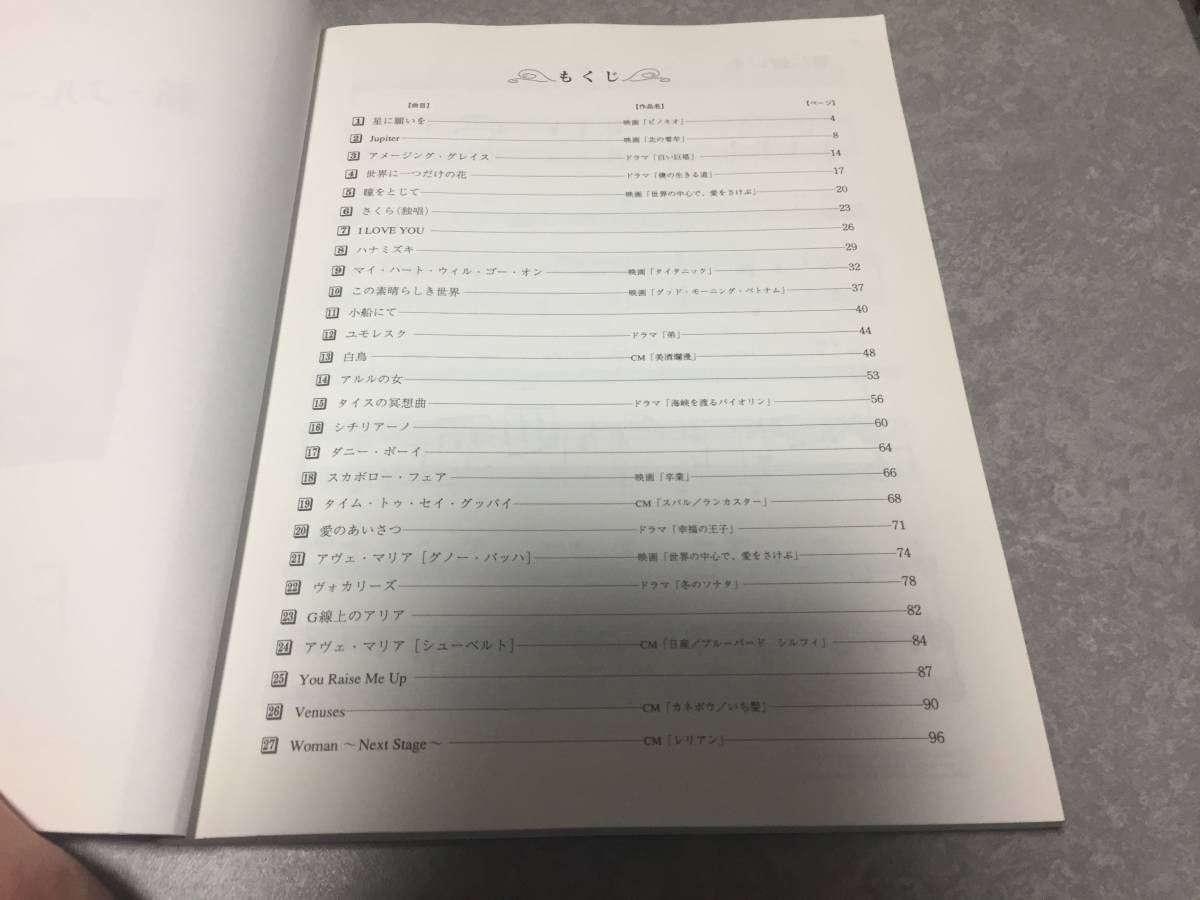 もくじ
【曲目】 【作品名】 【ページ】
1 星に願いを 映画「ピノキオ」 4
2 Jupiter 映画「北の零年」 8
3 アメージング・グレイス ドラマ「白い巨塔」 14
4 世界に一つだけの花 ドラマ「僕の生きる道」 17
5 瞳をとじて 映画「世界の中心で、愛をさけぶ」 20
6 さくら(独唱) 23
7 I LOVE YOU 26
8 ハナミズキ 29
9 マイ・ハート・ウィル・ゴー・オン 映画「タイタニック」 32
10 この素晴らしき世界 映画「グッド・モーニング・ベトナム」 37
11 小船にて 40
12 ユモレスク ドラマ「弟」 44
13 白鳥 CM「美酒爛漫」 48
14 アルルの女 53
15 タイスの冥想曲 ドラマ「海峡を渡るバイオリン」 56
16 シチリアーノ 60
17 ダニー・ボーイ 64
18 スカボロー・フェア 映画「卒業」 66
19 タイム・トゥ・セイ・グッバイ CM「スバル/ランカスター」 68
20 愛のあいさつ ドラマ「幸福の王子」 71
21 アヴェ・マリア[グノー・バッハ] 映画「世界の中心で、愛をさけぶ」 74
22 ヴォカリーズ ドラマ「冬のソナタ」 78
23 G線上のアリア 82
24 アヴェ・マリア[シューベルト] CM「日産/ブルーバード シルフィ」 84
25 You Raise Me Up 87
26 Venuses CM「カネボウ/いち髪」 90
27 Woman ～Next Stage～ CM「レリアン」 96